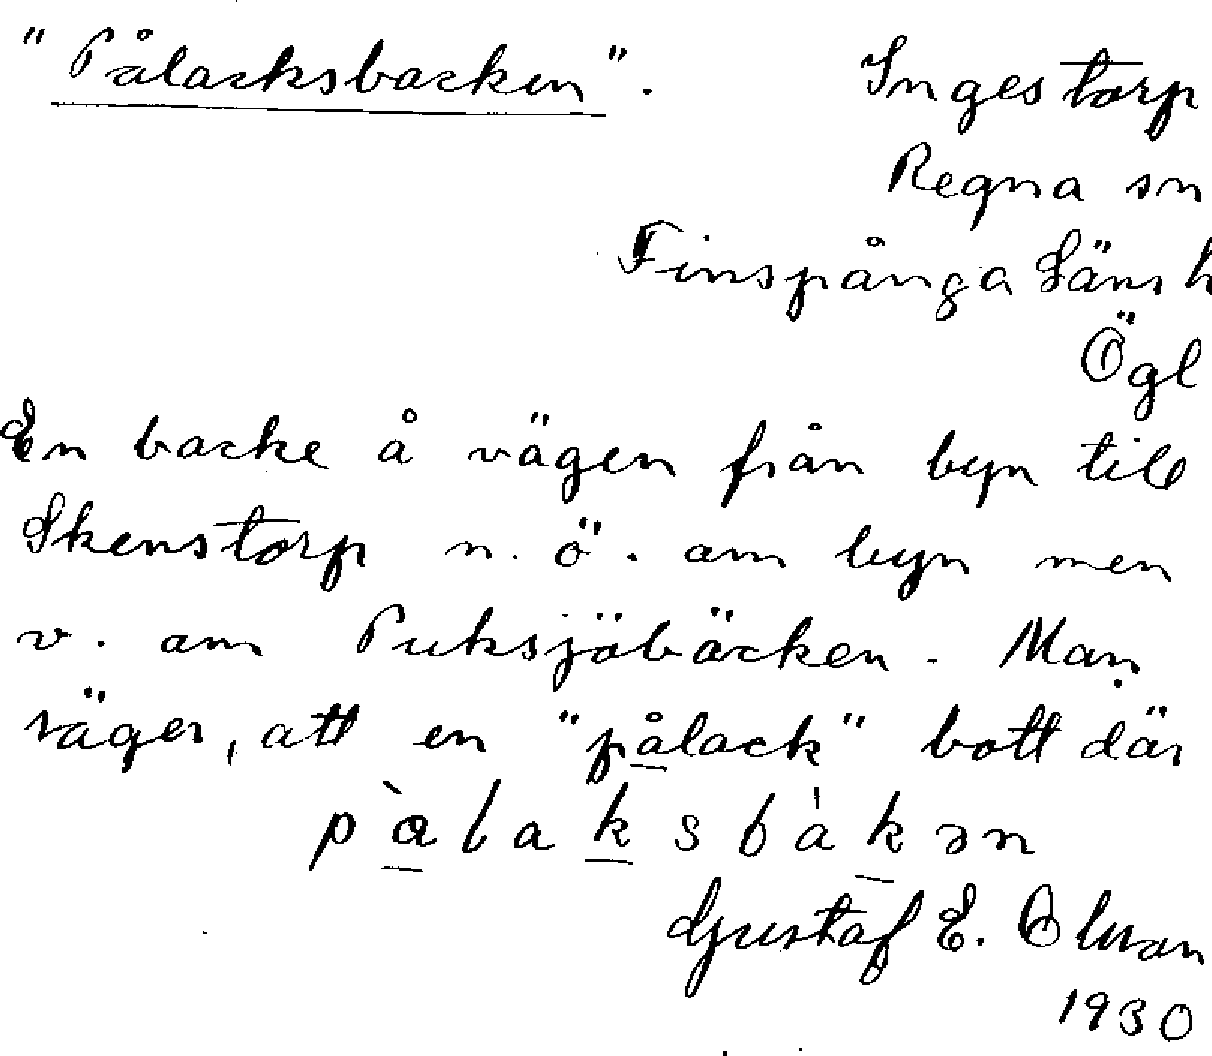 "Pålacksbacken". Ingestorp
Regna sn
Finspånga läns h
Ögl
En backe å vägen från byn till
Skenstorp n. ö. om byn men
v. om Puksjöbäcken. Man
säger, att en "pålack" bott där
pὰlaksbàkən
Gustaf E. Olson
1930